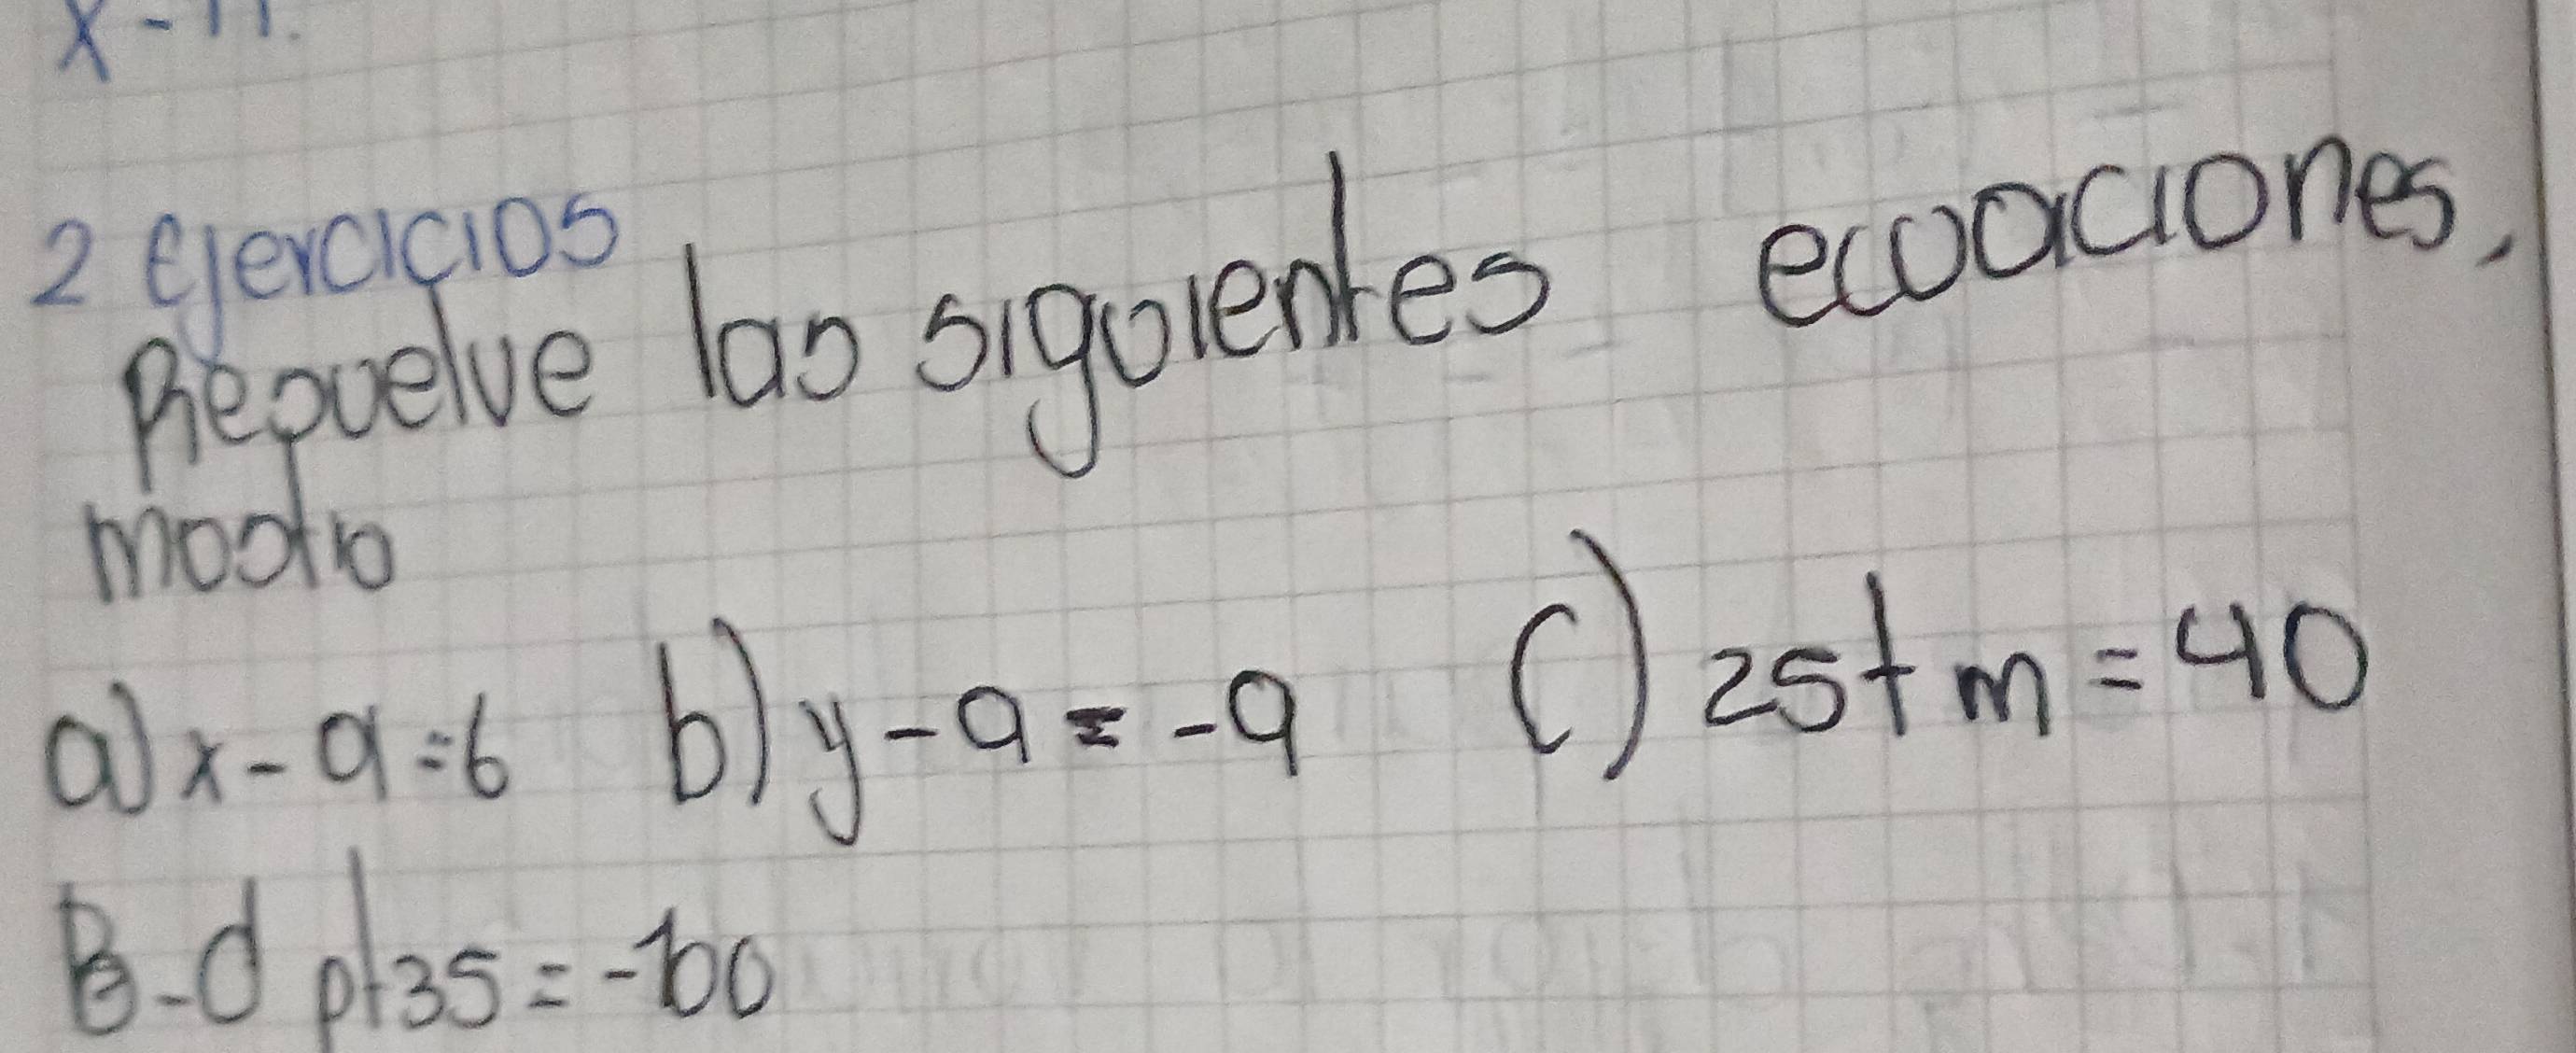 x - 11.
2 Ejercicios
Resuelve las siguientes ecuaciones,
a) x - 9 = 6 b) y - 9 = -9 c) 25 + m = 40
B-d p + 35 = -100